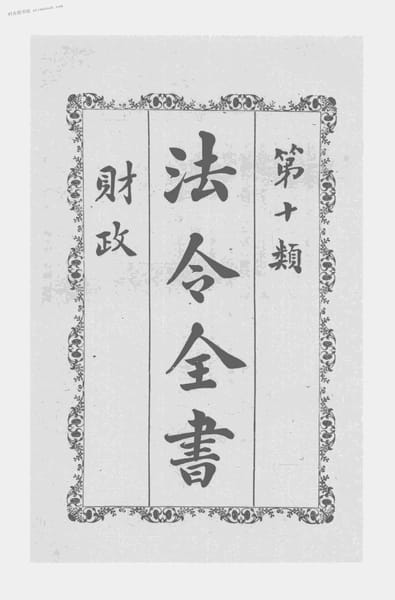 第十類
法令全書
財政